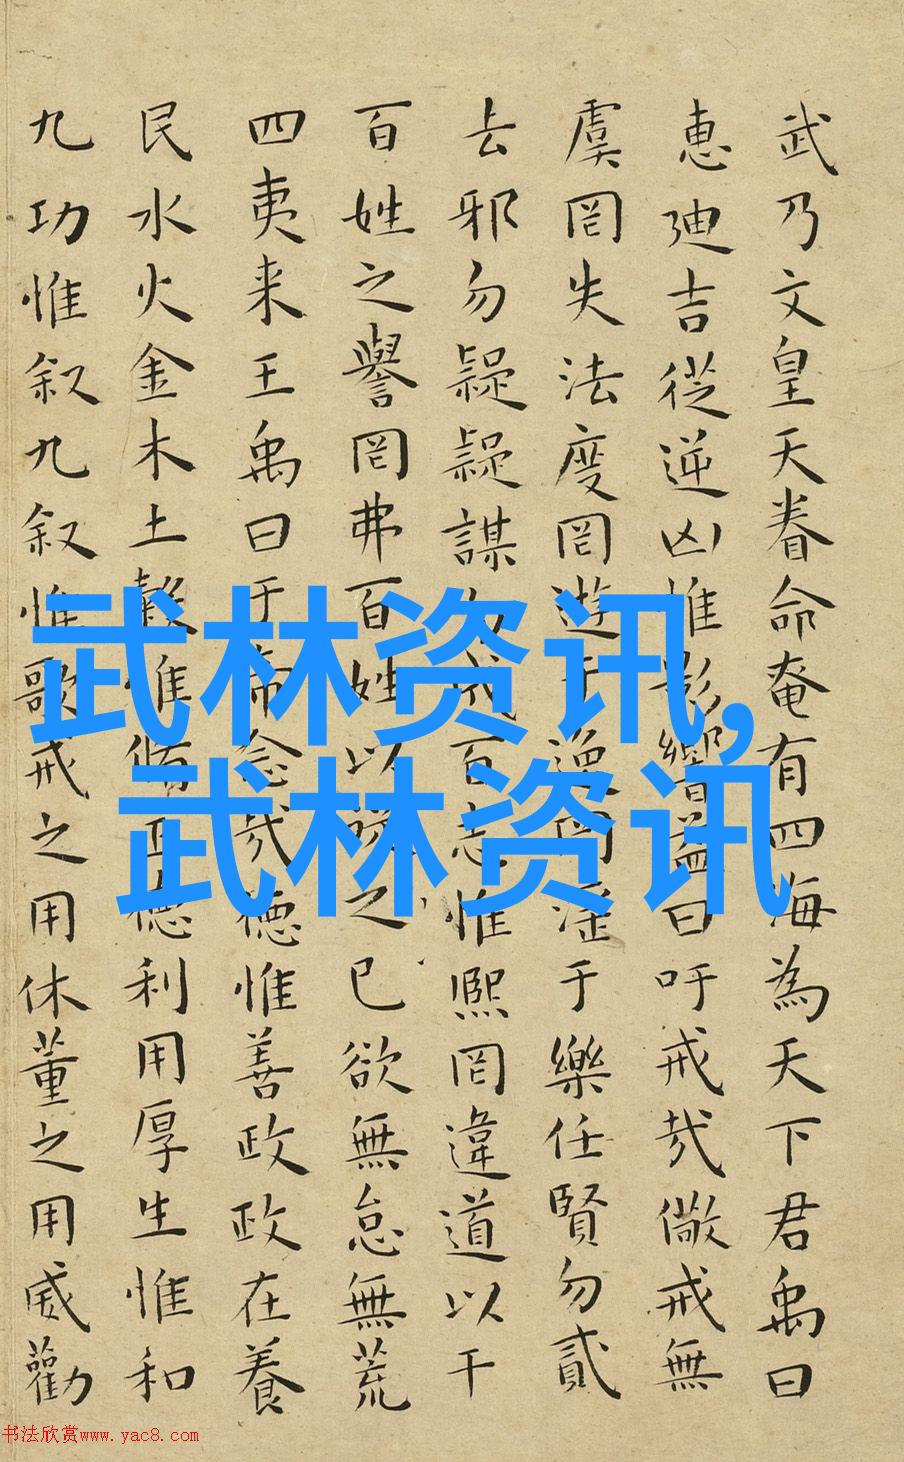 武乃文皇天眷命奄有四海為天下君禹曰
惠迪吉從逆凶惟影響益曰吁戒哉儆戒無
虞罔失法度罔遊于逸罔淫于樂任賢勿貳
去邪勿疑疑謀勿成百志惟熙罔違道以干
百姓之譽罔弗百姓以從之己欲無怠無荒
四夷来王禹曰于帝念哉德惟善政政在養
民水火金木土穀惟脩正德利用厚生惟和
九功惟叙九叙惟歌戒之用休董之用威勸
武林资讯,
武林资讯
书法欣赏www.yac8.com